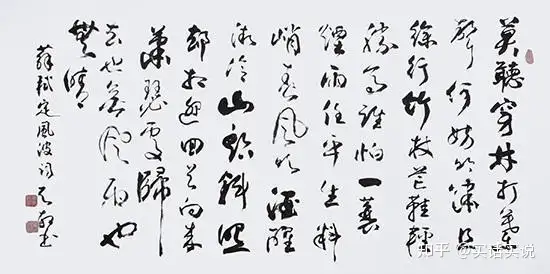 莫聽穿林打葉
聲何妨吟嘯且
徐行竹杖芒鞋輕
勝馬誰怕一蓑
煙雨任平生料
峭春風吹酒醒
微冷山頭斜照
却相迎回首向来
蕭瑟處歸
去也無風雨也
無晴
蘇軾定風波詞 書
知乎 @实话实说